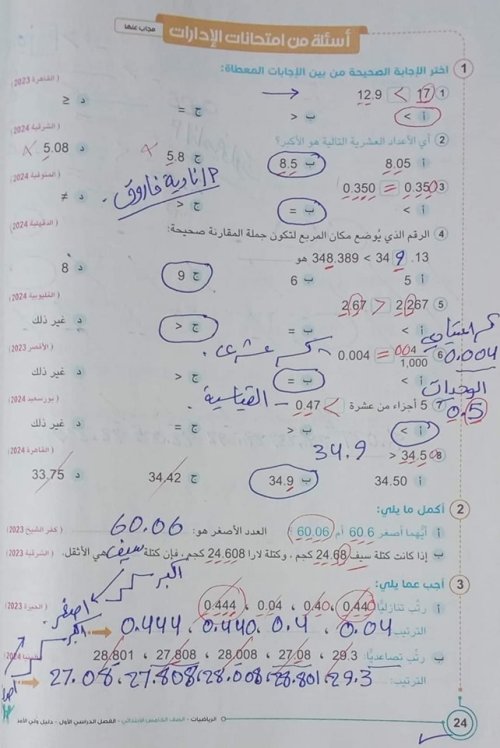 أسئلة من امتحانات الإدارات مجاب عنها
1 اختر الإجابة الصحيحة من بين الإجابات المعطاة:
(القاهرة 2023)
① 17 < 12.9
أ > ب < ج = د ≤
② أي الأعداد العشرية التالية هو الأكبر؟ (الشرقية 2024)
أ 8.05 ب 8.5 ج 5.8 د 5.08
③ 0.350 = 0.350 (المنوفية 2024)
أ > ب = ج < د ≠
أ/نادية فاروق
④ الرقم الذي يُوضع مكان المربع لتكون جملة المقارنة صحيحة: (الدقهلية 2024)
348.389 < 34 9 .13 هو
أ 5 ب 6 ج 9 د 8
⑤ 2.267 > 2.67 (القليوبية 2024)
أ > ب = ج < د غير ذلك
كسر عشرى
كسر اعتيادي
⑥ 004/1,000 = 0.004 (الأقصر 2023)
0.004
أ > ب = ج < د غير ذلك
الوحدات القياسية
⑦ 5 أجزاء من عشرة < 0.47 (بورسعيد 2024)
0.5
أ > ب < ج = د غير ذلك
⑧ 34.50 < 34.9 (القاهرة 2024)
أ 34.50 ب 34.9 ج 34.42 د 33.75
2 أكمل ما يلي:
أ أيُّهما أصغر 60.6 أم 60.06 ؟ العدد الأصغر هو: 60.06 (كفر الشيخ 2023)
ب إذا كانت كتلة سيف 24.68 كجم، وكتلة لارا 24.608 كجم، فإن كتلة سيف هي الأثقل. (الشرقية 2023)
3 أجب عما يلي:
أكبر
أصغر
أ رتِّب تنازليًّا: 0.440 ، 0.40 ، 0.04 ، 0.444 (الجيزة 2023)
الترتيب: 0.444 ، 0.440 ، 0.4 ، 0.04
أكبر
ب رتِّب تصاعديًّا: 29.3 ، 27.08 ، 28.008 ، 27.808 ، 28.801
الترتيب: 27.08 ، 27.808 ، 28.008 ، 28.801 ، 29.3
24 الرياضيات - الصف الخامس الابتدائي - الفصل الدراسي الأول - دليل ولي الأمر